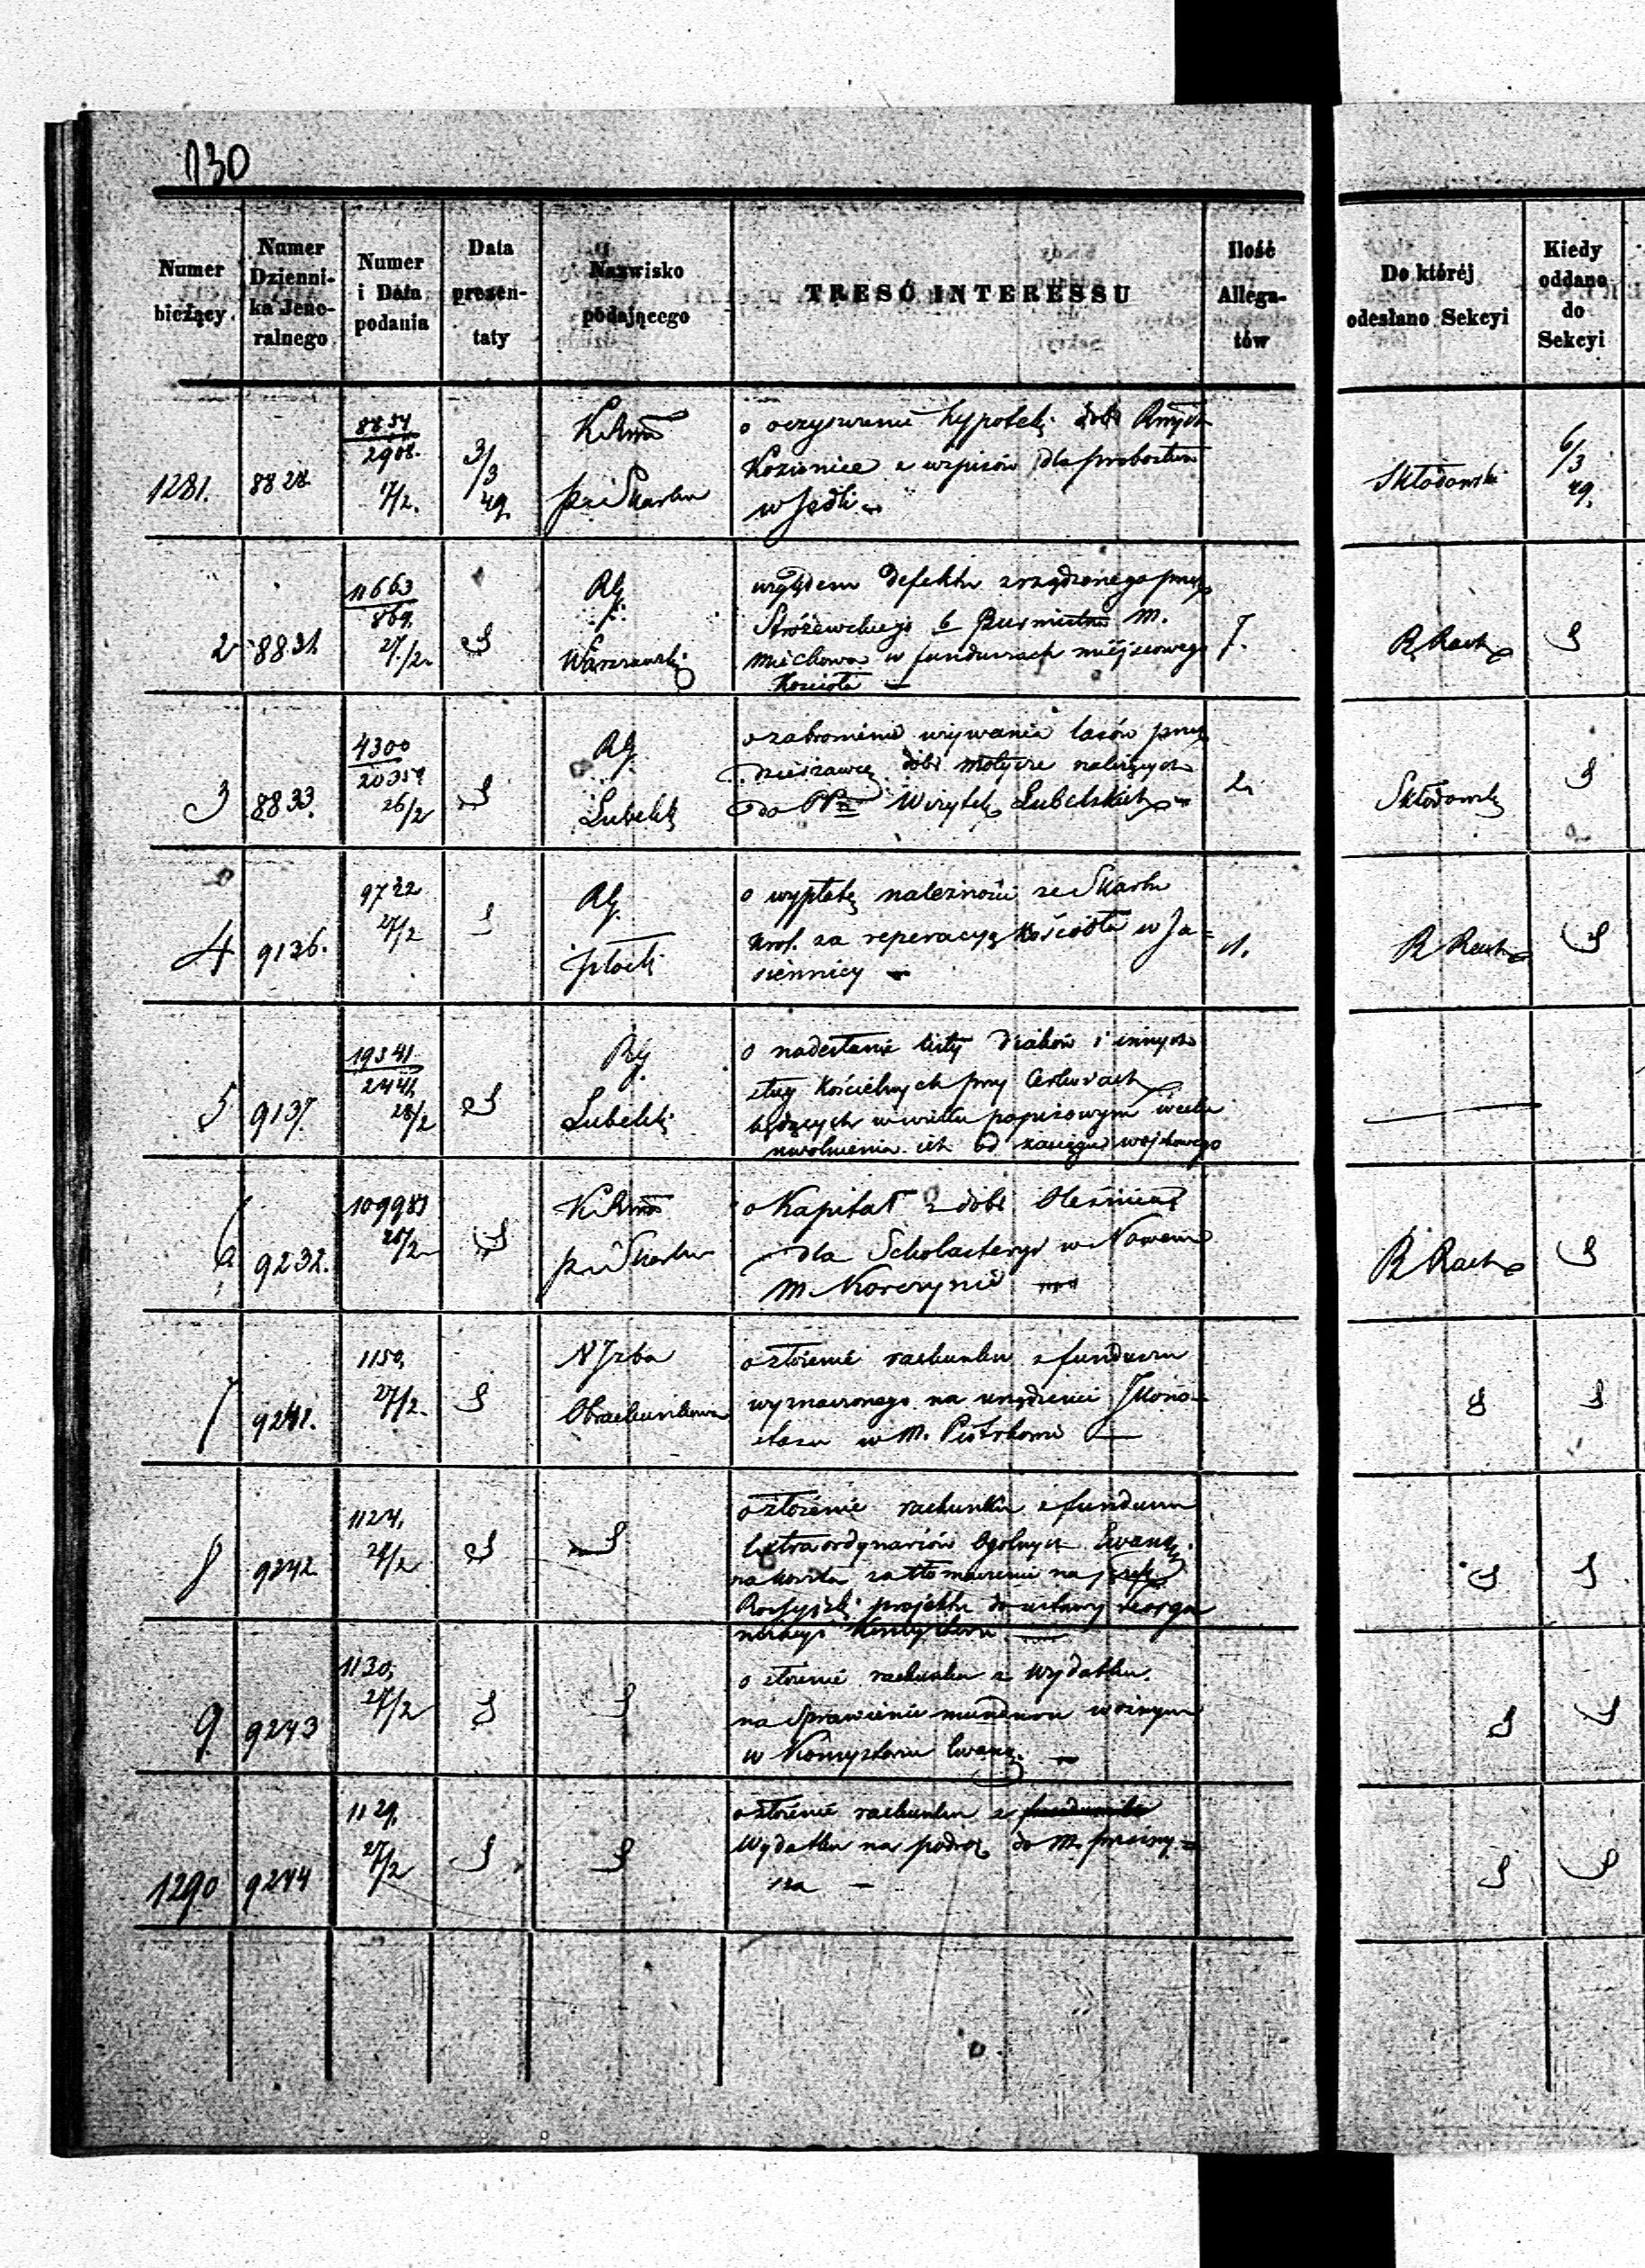 130
Numer bieżący.
Numer Dzienni-
ka Jene-
ralnego
Numer i Data podania
Data prezen-
taty
Nazwisko podającego
TREŚĆ INTERESSU
Ilość Allega-
tów
Do któréj odesłano Sekcyi
Kiedy oddano do Sekcyi
1281. 8828 2908. 17/2. 3/3 49.
o oczyszczenie hypoteki dóbr
Kozienice z wpisów dla probostwa
w Jedlni
Skłodowski 6/3 49.
2 8831 11663 869. 27/2. RG Warszawski
względem defektu zrządzonego przez
Stróżewskiego b Burmistrza M.
Miechowa w funduszach miejscowego
Kościoła —
7.
3 8833. 4300 20359 26/2 RG Lubelski
o zabronienie używania lasów przez
dzierżawcę dóbr Motycze należących
do Wizytek Lubelskich
2.
Skłodowski
4 9136. 9722 27/2 RG Płocki
o wypłatę należności ze Skarbu
za reperacyę Kościoła w Ja=
siennicy —
1.
5 9137. 19341 2441. 28/2 RG Lubelski
o nadesłanie listy Diaków i innych
sług kościelnych przy Cerkwiach
będących w wieku popisowym w celu
uwolnienia ich od zaciągu wojskowego
6 9232. 109981 28/2
o Kapitał z dóbr Oleśnica
dla Scholasteryi w Nowem
m. Korczynie
7 9241. 1150. 27/2. N Izba Obrachunkowa
o złożenie rachunku z funduszu
wyznaczonego na urządzenie Ikono-
stasu w M. Piotrkowie —
8 9242. 1124. 27/2
o złożenie rachunku z funduszu
Extraordynariów Ogólnych Ewang.
za tłomaczenie na język
Rossyjski projektu do ustawy reorga
nizacyi Konsystorza —
9. 9243 1130. 27/2
o złożenie rachunku z wydatku
na sprawienie mundurów woźnym
w Konsystorzu Ewang. —
1290 9244 1129. 27/2
o złożenie rachunku z
wydatku na podróż do M. Przasny=
sza —